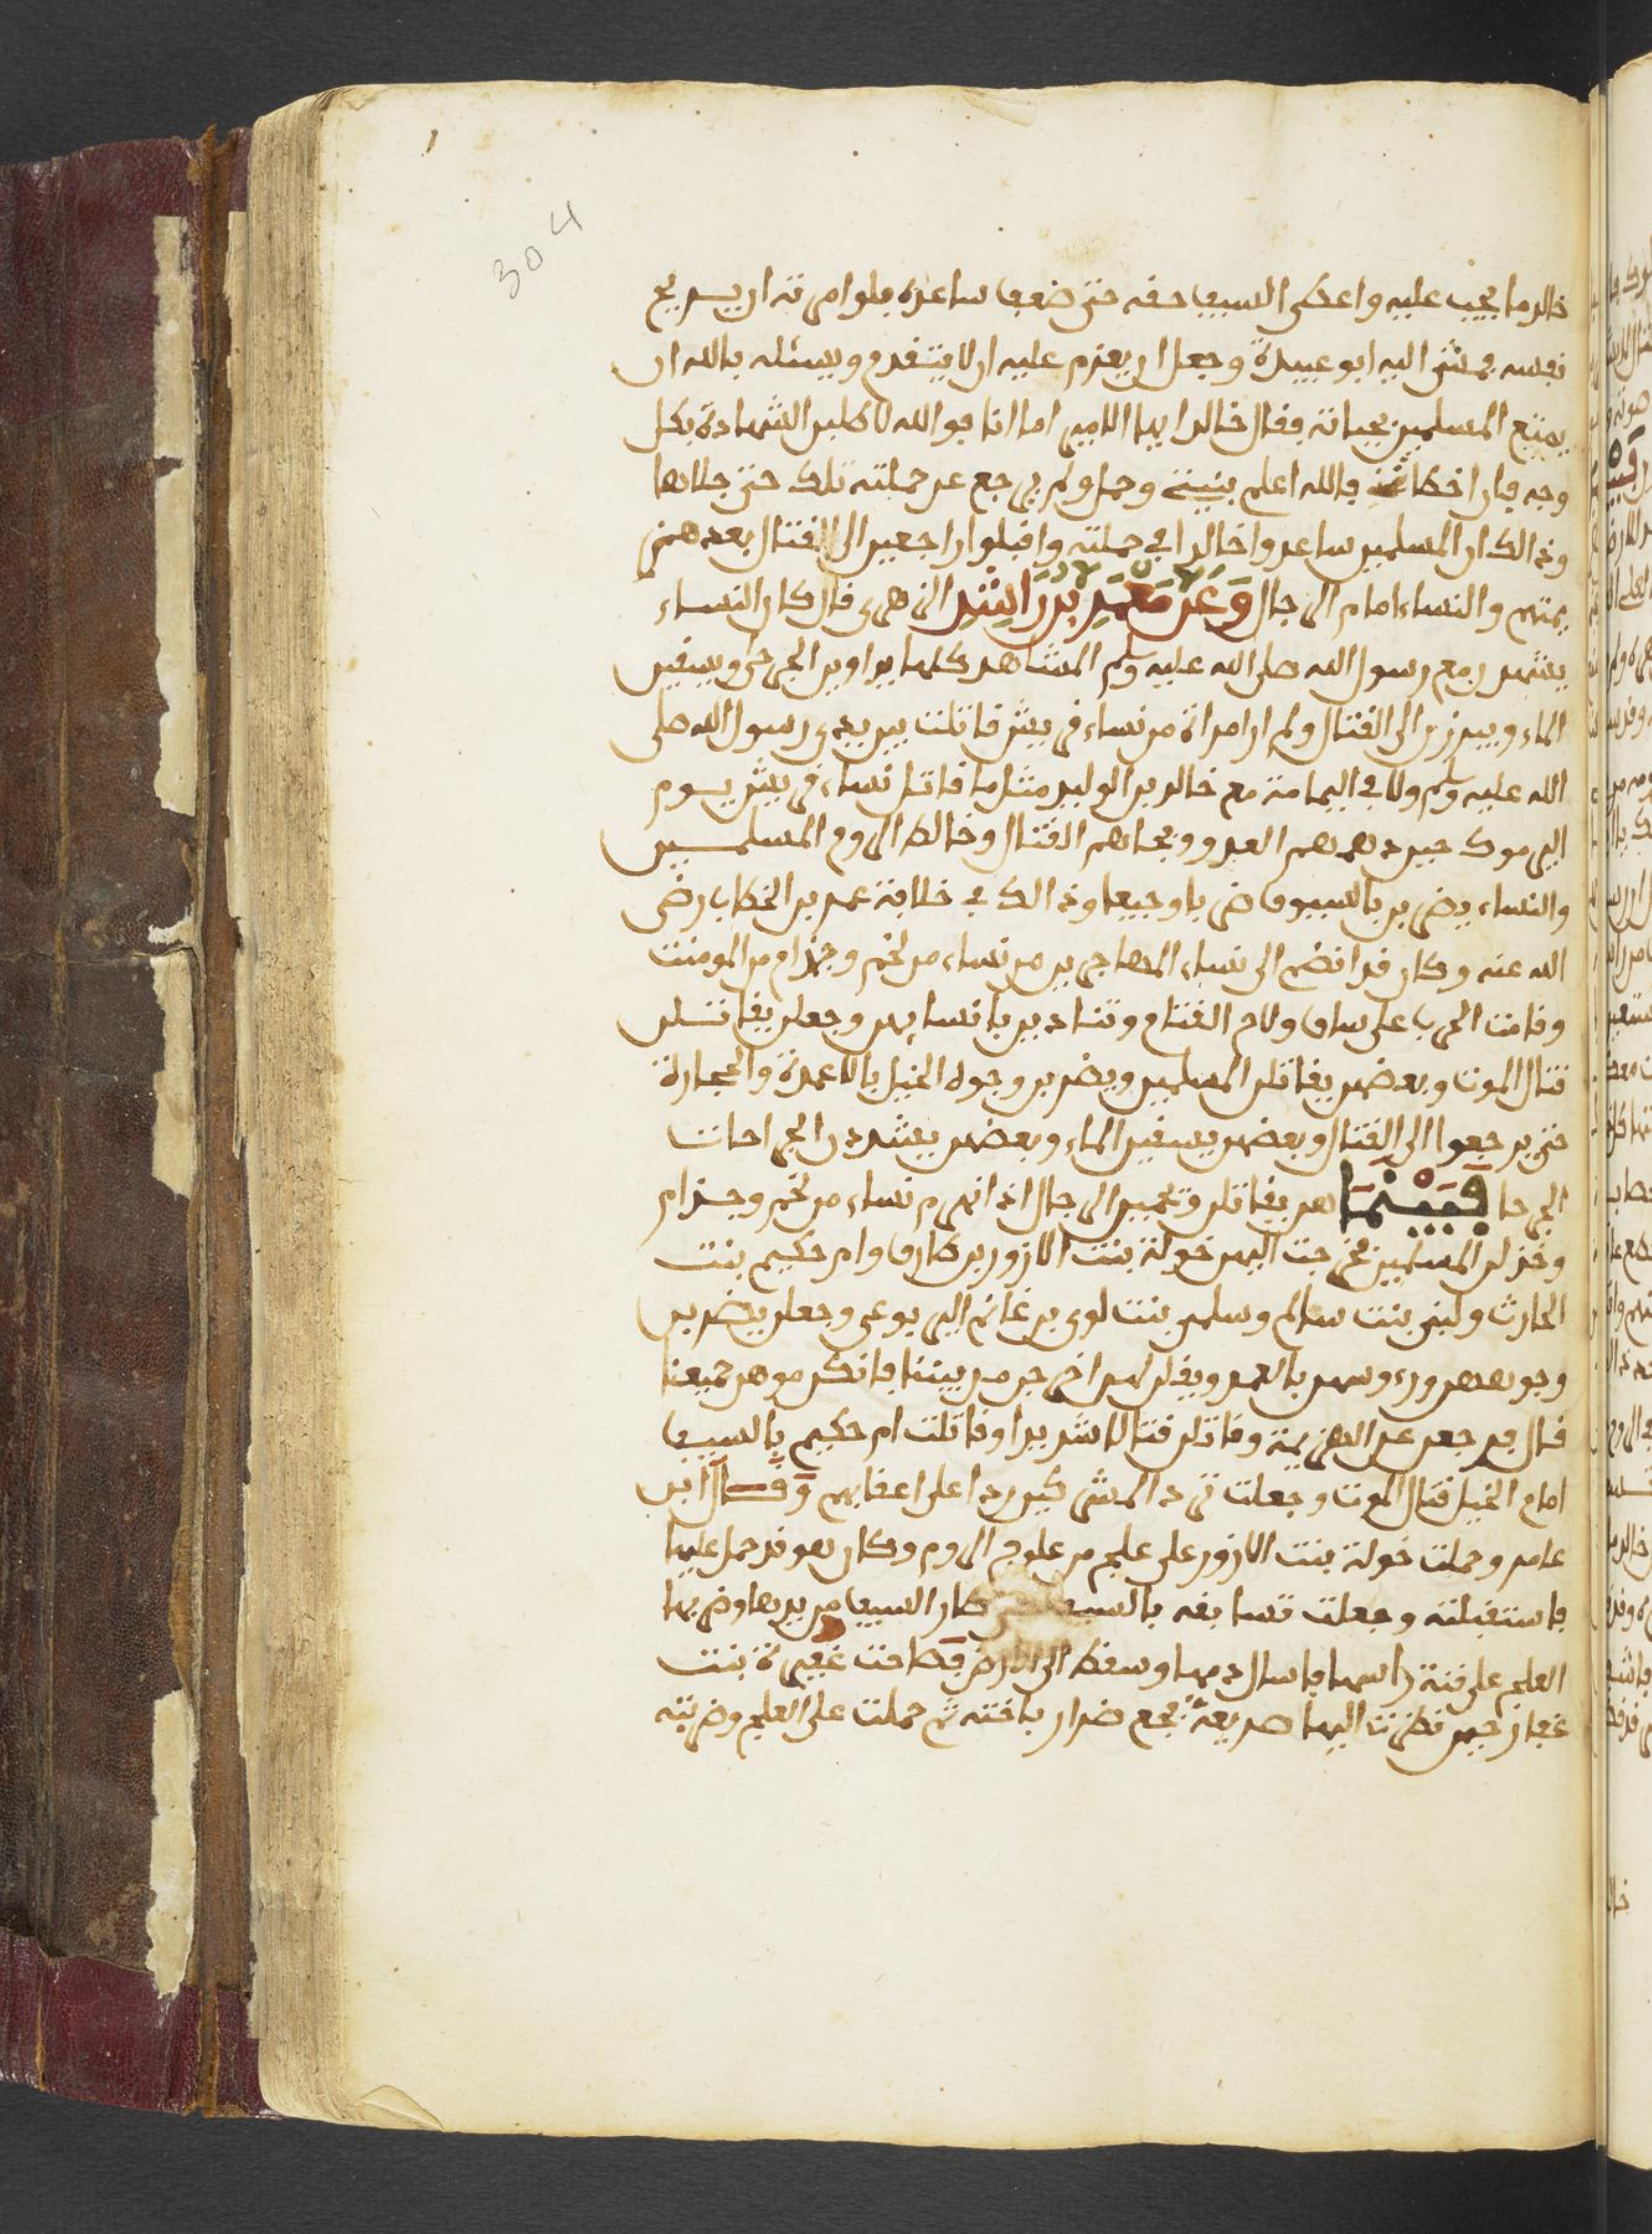 304
خالد ما يجب عليه واعطى السيف حقه حتى ضعف ساعده فلو امرته ان يسريح
نفسه فمشى اليه ابو عبيدة وجعل ان يعزم عليه ان لا يتقدم ويسئله بالله ان
يمتع المسلمين بحياته فقال خالد ايها الامير اما انا فوالله لاطلبن الشهادة بكل
وجه فان اخطاتني فالله اعلم بنيتي وحمل ولم يرجع عن حملته تلك حتى جلاها
وذالك ان المسلمين ساعدوا خالدا في حملته واقبلوا راجعين الى القتال بعد هزي
يمتهم والنساء امام الرجال وعن معمر بن راشد الزهري قال كان النساء
يشهدن مع رسول الله صلى الله عليه وسلم المشاهد كلها يداوين الجرحى ويسقين
الماء ويبرزن الى القتال ولم ار امراة من نساء قريش قاتلت بين يدي رسول الله صلى
الله عليه وسلم ولا في اليمامة مع خالد بن الوليد مثل ما قاتل نساء قريش يوم
اليرموك حين دهمهم العدو وبجاهم القتال وخالط الروم المسلمين
والنساء يضربن بالسيوف ضربا وجيعا وذالك في خلافة عمر بن الخطاب رضي
الله عنه وكان قد انضم الى نساء المهاجرين من نساء من لخم وجذام من المومنت
وقامت الحرب على ساق ولاح القتام وتنادين يا نسايهم وجعلن يقاتلن
قتال الموت وبعضهن يقاتلن المسلمين ويضربن وجوه الخيل بالاعمدة والحجارة
حتى يرجعوا الى القتال وبعضهن يسقين الماء وبعضهن يشددن الجراحات
الجرحا فبينما هن يقاتلن وتحمين الرجال اذ انهزم نساء من لخم وجذام
وخذلن المسلمين فخرجت اليهن خولة بنت الازور بن طارق وام حكيم بنت
الحارث ولبنى بنت سالم وسلمى بنت لوي بن غانم اليربوعي وجعلن يضربن
وجوههن ورءوسهن بالعمد ويقلن لهن اخرجن من بيننا فانكن موهن جميعنا
قال فرجعن عن الهزيمة وقاتلن قتالا شديدا وقاتلت ام حكيم بالسيف
امام الخيل قتال الموت وجعلت ترد المشركين ردا على اعقابهم وقال ابن
عامر وحملت خولة بنت الازور على علج من علوج الروم وكان هو قد حمل عليها
فاستقبلته وجعلت تسايفه بالسيف حتى طار السيف من يدها وضربها
العلج على قنة راسها فاسال دمها وسقط الى الارض فصاحت عفيرة بنت
غفار حين نظرت اليها صريعة فجع ضرار باخته ثم حملت على العلج وضربته